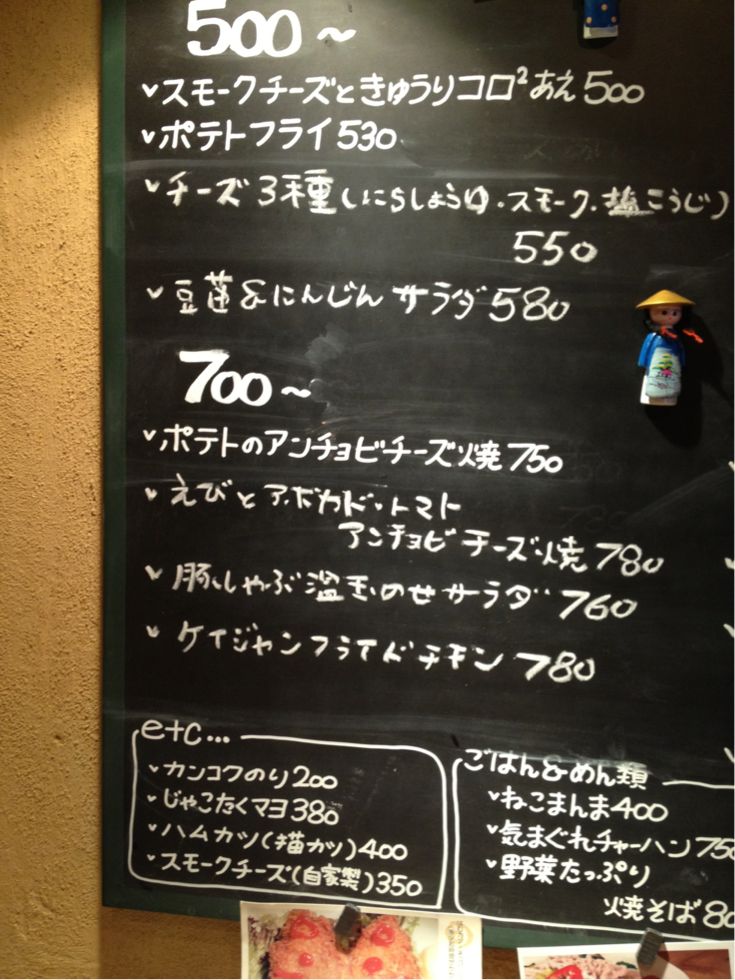 500～
スモークチーズときゅうりコロ²あえ500
ポテトフライ530
チーズ3種(にらしょうゆ・スモーク・塩こうじ)
550
豆蓮&にんじんサラダ580
700～
ポテトのアンチョビチーズ焼750
えびとアボカド・トマト
アンチョビチーズ焼780
豚しゃぶ温玉のせサラダ760
ケイジャンフライドチキン780
etc...
カンコクのり200
じゃこたくマヨ380
ハムカツ(猫カツ)400
スモークチーズ(自家製)350
ごはん&めん類
ねこまんま400
気まぐれチャーハン750
野菜たっぷり
焼そば80